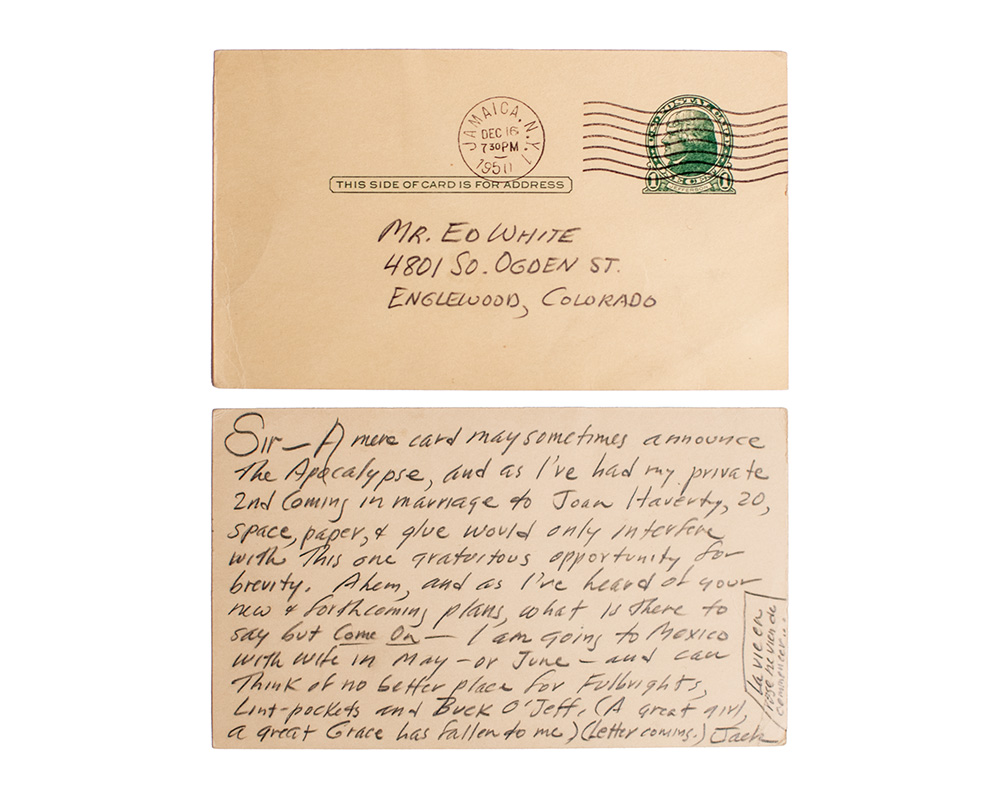 JAMAICA, N.Y. 1
DEC 16
7 30 PM
1950
THIS SIDE OF CARD IS FOR ADDRESS
MR. ED WHITE
4801 SO. OGDEN ST.
ENGLEWOOD, COLORADO
Sir — A mere card may sometimes announce
the Apocalypse, and as I've had my private
2nd Coming in marriage to Joan Haverty, 20,
space, paper, & glue would only interfere
with this one gratuitous opportunity for
brevity. Ahem, and as I've heard of your
new & forthcoming plans, what is there to
say but Come On — I am going to Mexico
with wife in May – or June – and can
think of no better place for Fulbrights,
Lint-pockets and Buck O'Jeff. (A great girl,
a great Grace has fallen to me) (Letter coming.) Jack
la vie en
rose ne vien de
commencer...